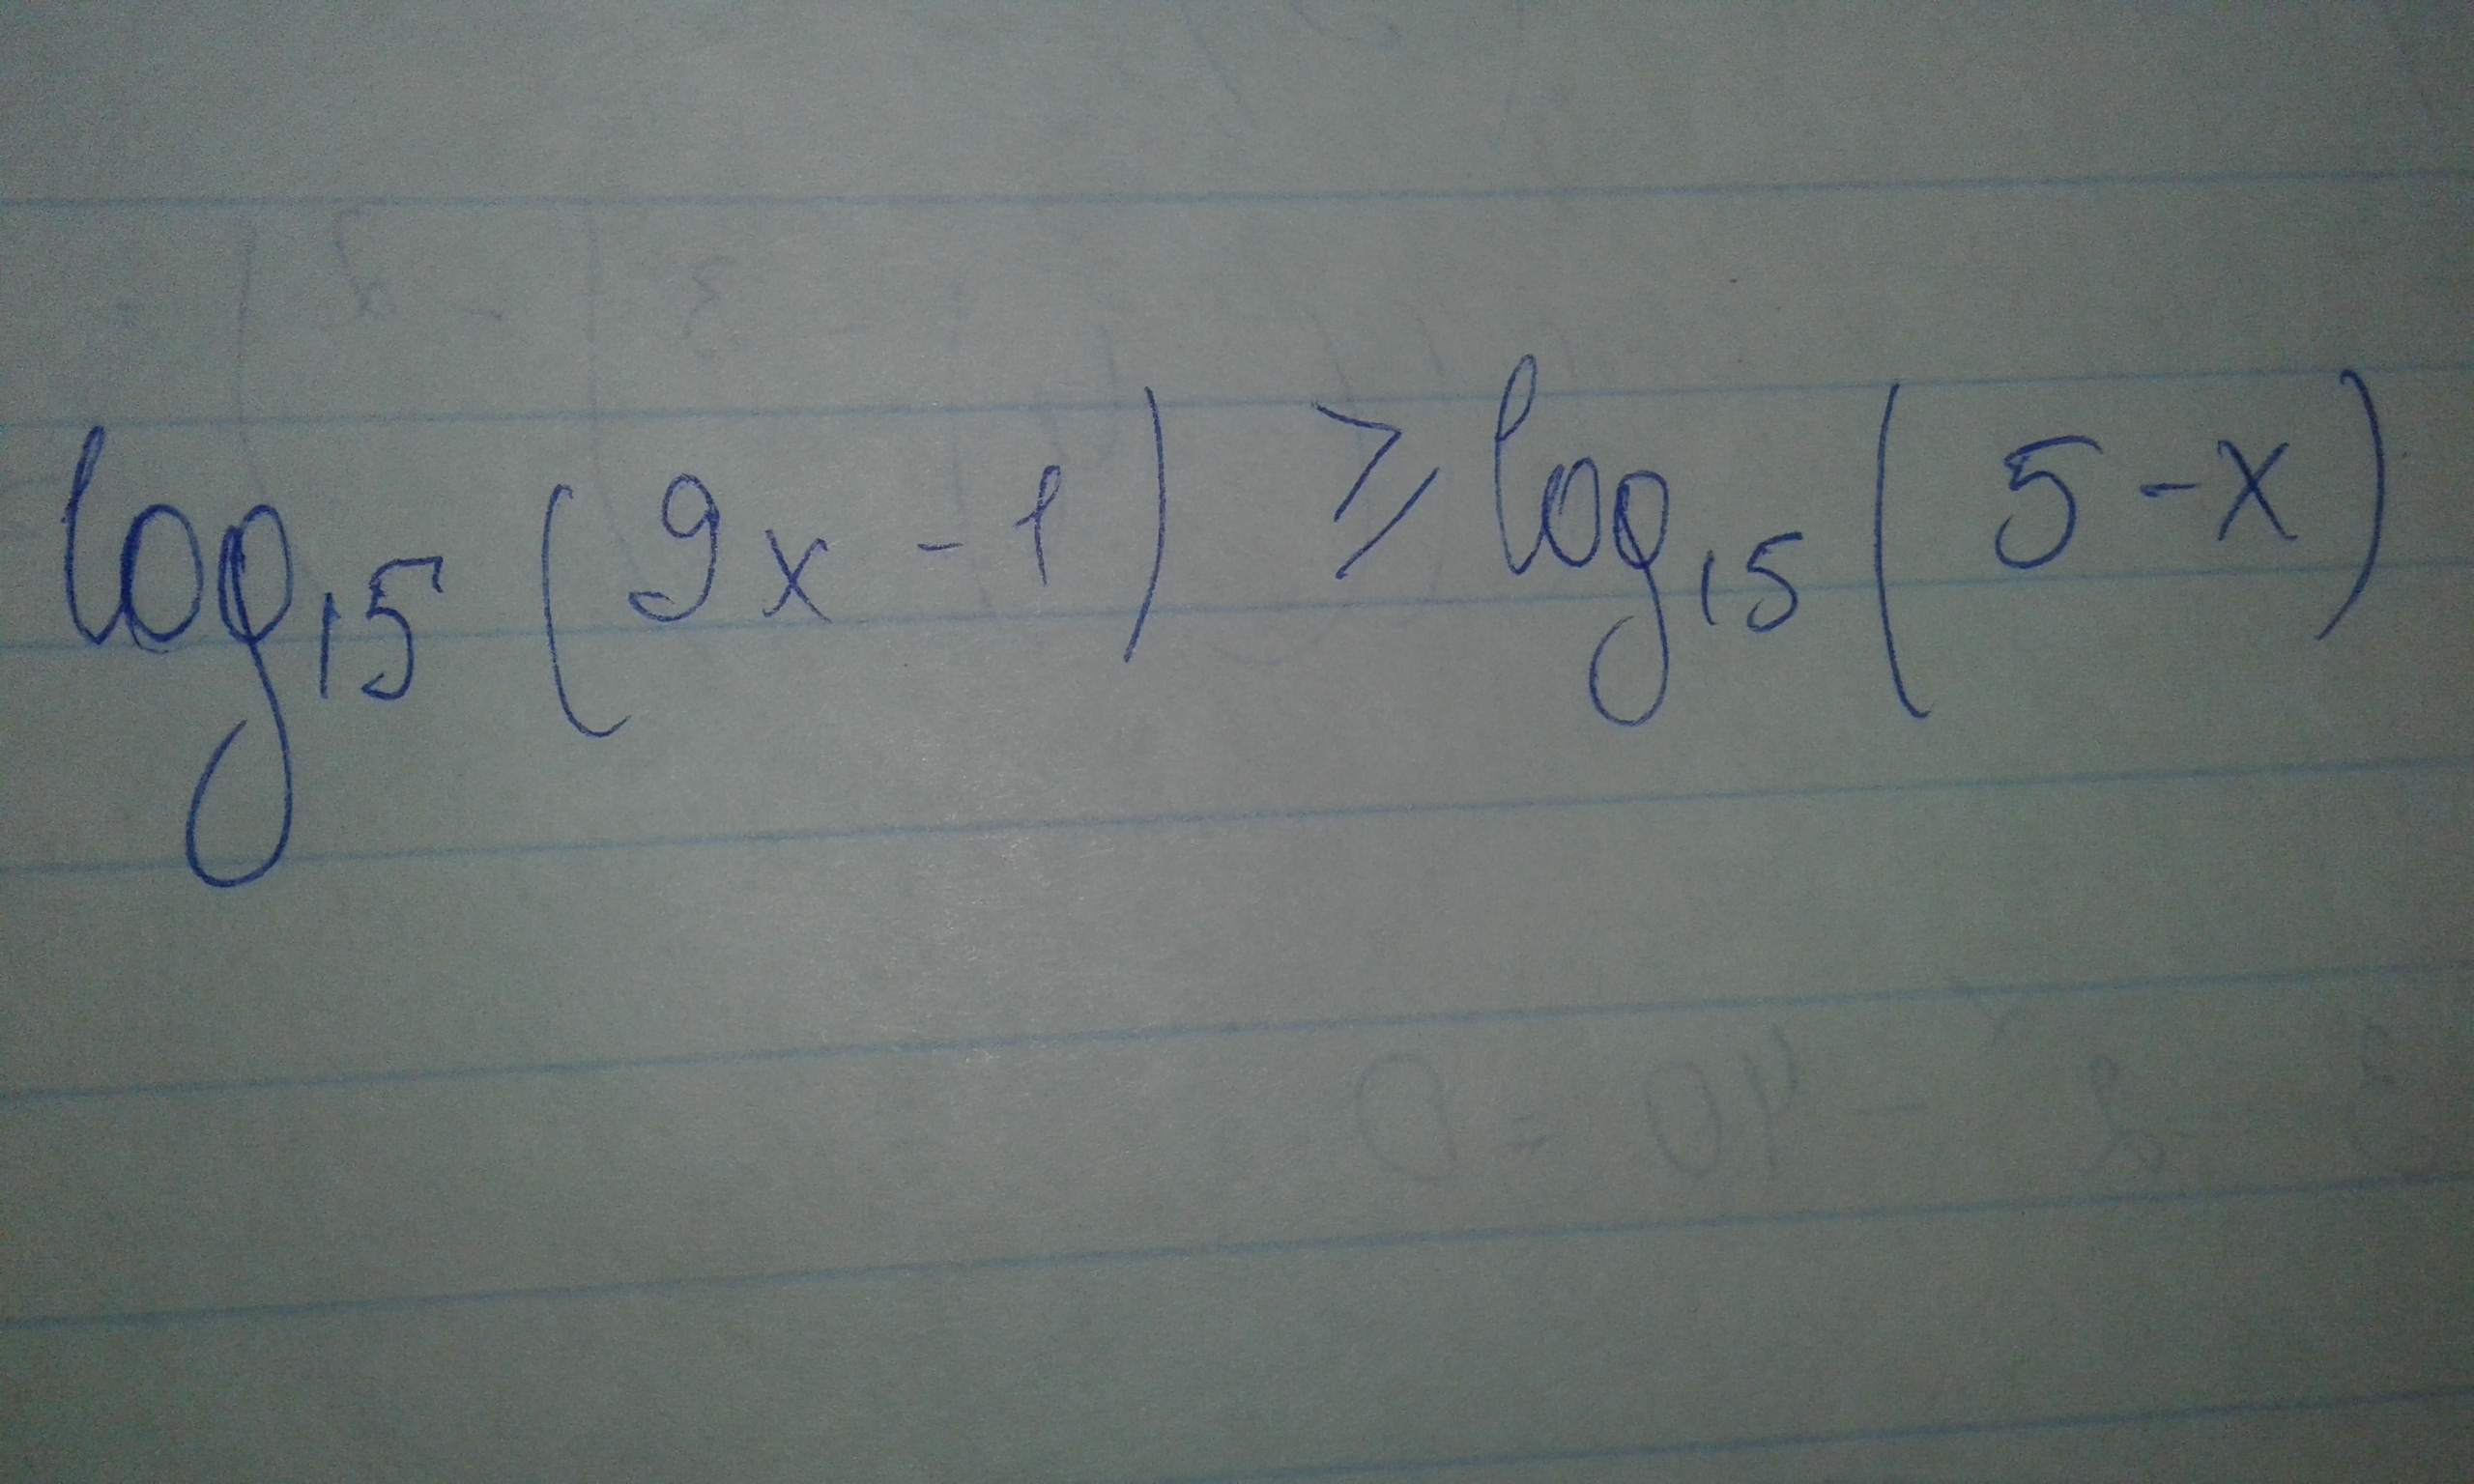 log₁₅ (9x - 1) ⩾ log₁₅ (5 - x)